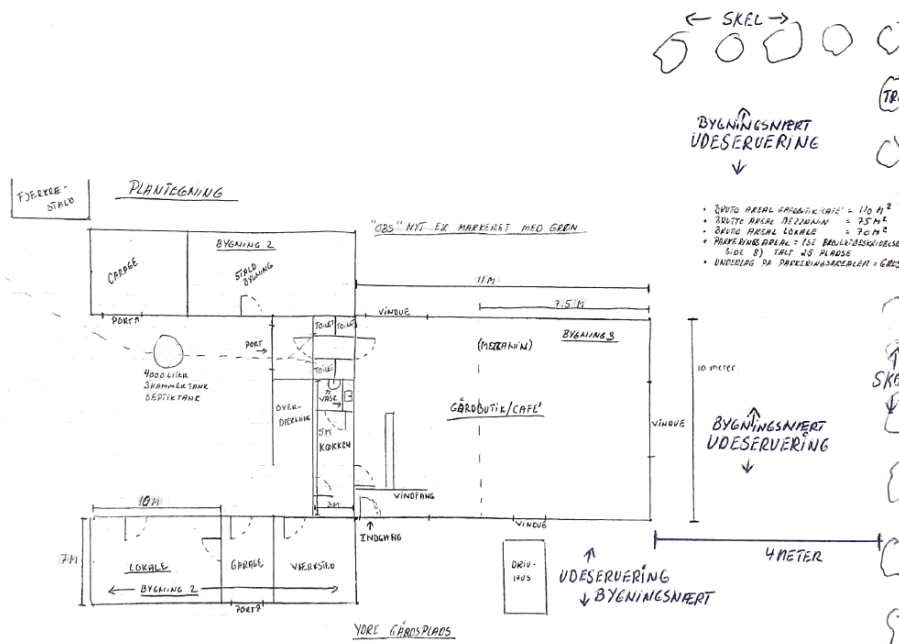 ← SKEL →
TR
BYGNINGSNÆRT
UDESERVERING
FJERKRÆ-
STALD
PLANTEGNING
"OBS" NYT ER MARKERET MED GRØN
• BRUTO AREAL GÅRDBUTIK/CAFÉ = 110 M²
• BRUTTO AREAL MEZZANIN = 75 M²
• BRUTO AREAL LOKALE = 70 M²
• PARKERINGSAREAL = (SE PROJEKTBESKRIDELSE
SIDE 8) TALT 25 PLADSE
• UNDERLAG PÅ PARKERINGSAREALER = GRUS
BYGNING 2
GARAGE
STALD
BYGNING
11 M
7.5 M
PORT
VINDUE
TOILET
TOILET
BYGNING 3
PORT
(MEZZANIN)
TOILET
4000 LITER
3 KAMMER TANK
SEPTIKTANK
10 meter
SKEL
VASK
OVER-
DÆKNING
GÅRDBUTIK/CAFÉ
5M
KØKKEN
VINDUE
BYGNINGSNÆRT
UDESERVERING
VINDFANG
10M
3M
VINDUE
INDGANG
7M
LOKALE
GARAGE
VÆRKSTED
← BYGNING 2 →
PORT
DRIV-
HUS
4 METER
UDESERVERING
BYGNINGSNÆRT
YDRE GÅRDSPLADS